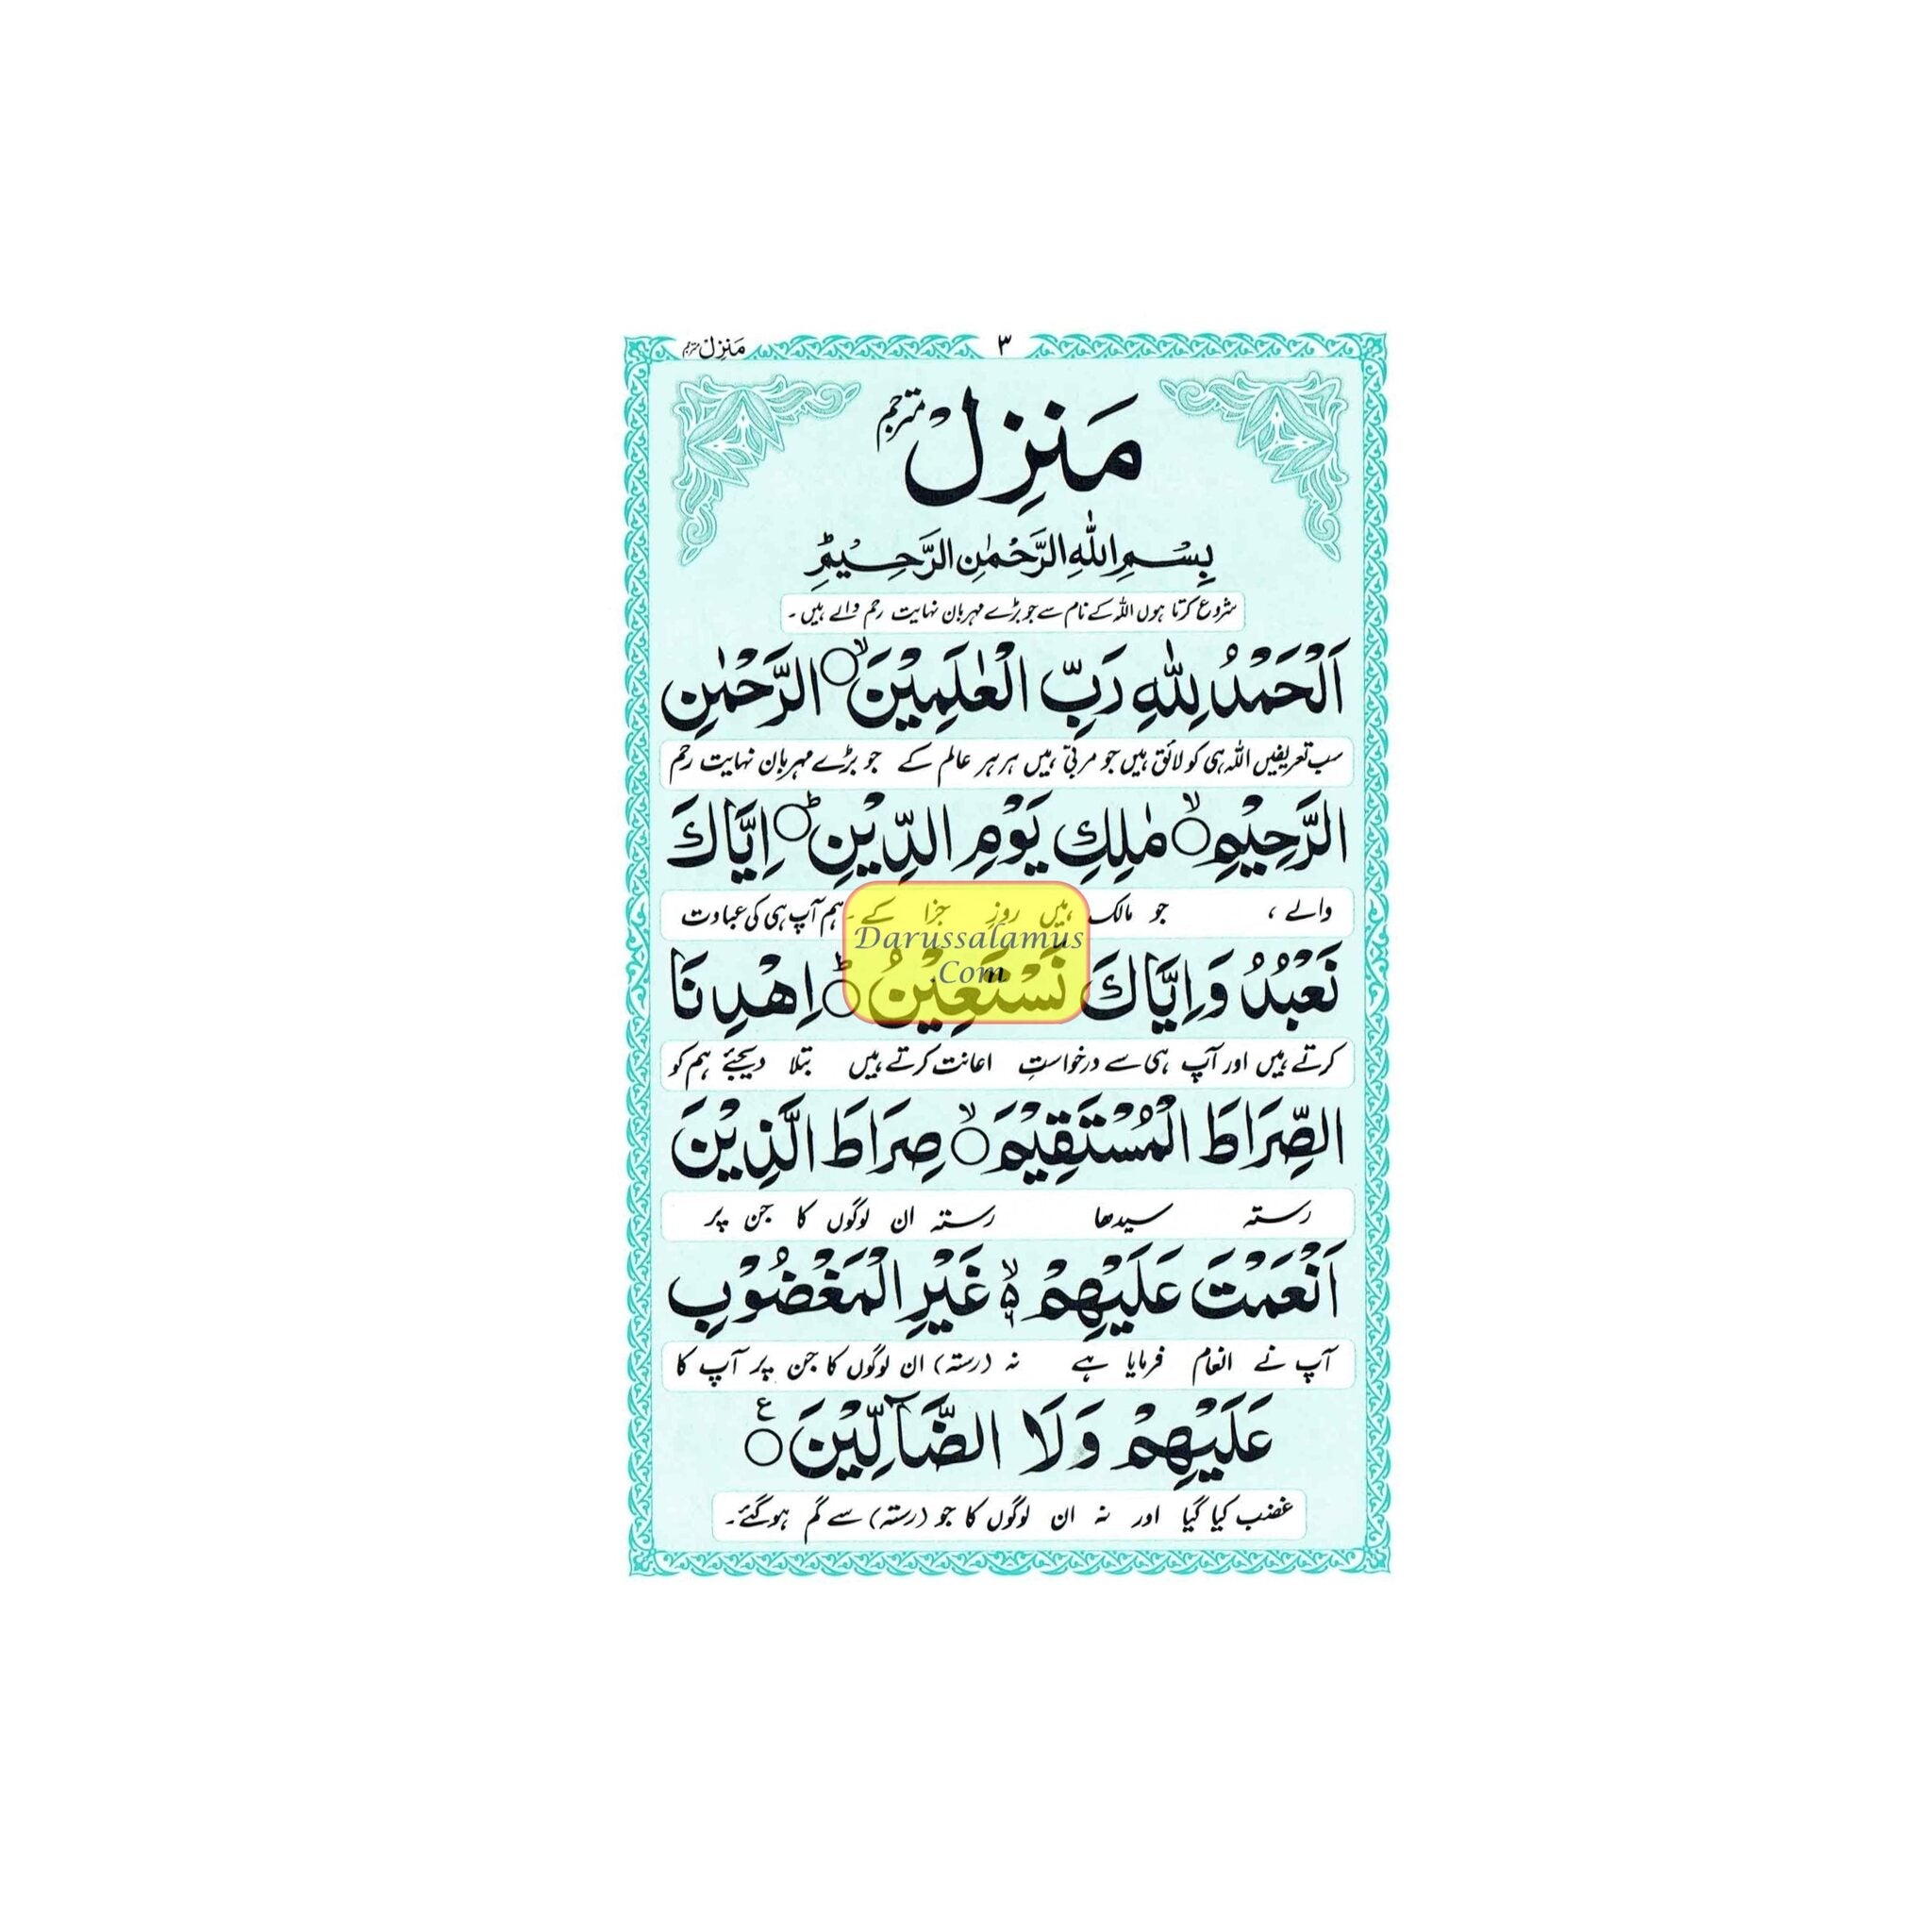 منزل مترجم
۳
مَنزِلْ مترجم
بِسْمِ اللّٰهِ الرَّحْمٰنِ الرَّحِيْمِؕ
شروع کرتا ہوں اللہ کے نام سے جو بڑے مہربان نہایت رحم والے ہیں۔
اَلْحَمْدُ لِلّٰهِ رَبِّ الْعٰلَمِيْنَۙ○ الرَّحْمٰنِ
سب تعریفیں اللہ ہی کو لائق ہیں جو مربّی ہیں ہر ہر عالم کے جو بڑے مہربان نہایت رحم
الرَّحِيْمِۙ○ مٰلِكِ يَوْمِ الدِّيْنِؕ○ اِيَّاكَ
والے، جو مالک ہیں روزِ جزا کے۔ ہم آپ ہی کی عبادت
Darussalamus
Com
نَعْبُدُ وَاِيَّاكَ نَسْتَعِيْنُؕ○ اِهْدِنَا
کرتے ہیں اور آپ ہی سے درخواستِ اعانت کرتے ہیں بتلا دیجئے ہم کو
الصِّرَاطَ الْمُسْتَقِيْمَۙ○ صِرَاطَ الَّذِيْنَ
رستہ سیدھا رستہ ان لوگوں کا جن پر
اَنْعَمْتَ عَلَيْهِمْ ۙ۵ غَيْرِ الْمَغْضُوْبِ
آپ نے انعام فرمایا ہے نہ (رستہ) ان لوگوں کا جن پر آپ کا
عَلَيْهِمْ وَلَا الضَّآلِّيْنَ○ ع
غضب کیا گیا اور نہ ان لوگوں کا جو (رستہ) سے گم ہوگئے۔